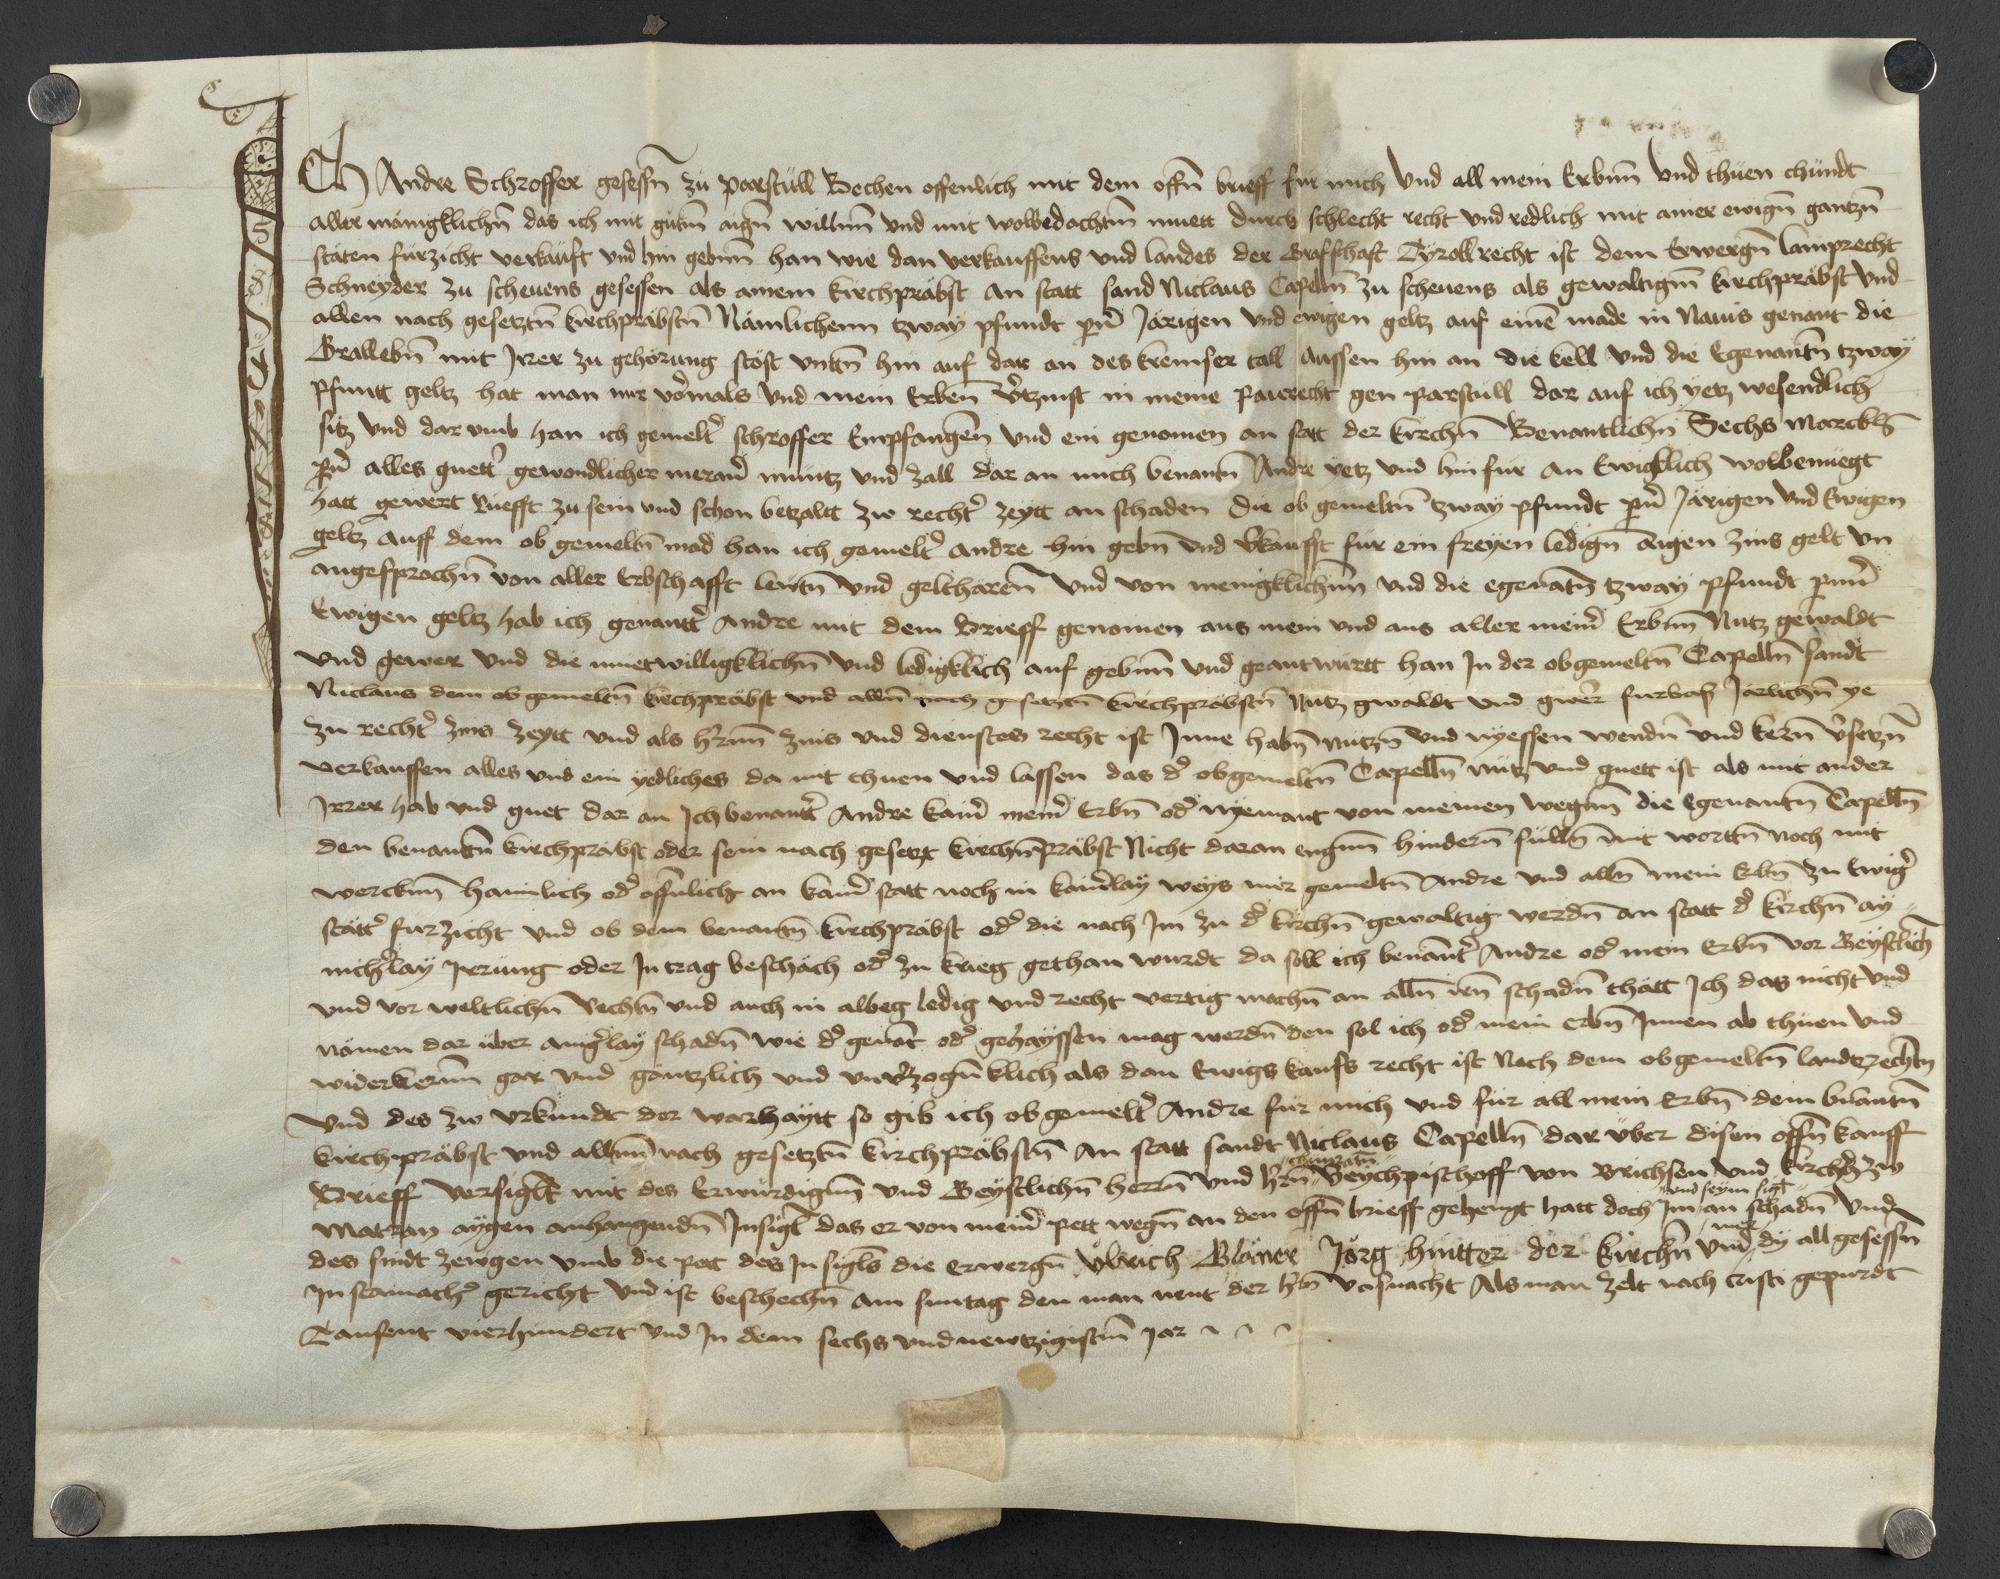 Ich Andre Schroffer gesessñ zu parstüll Bechen offenlich mit dem offñ brieff für mich Vnd all mein Erbnn Vnd thuen chundt
aller mänigklichñ das ich mit gutnn aign̄ willnn vnd mit wolbedachtnn muett durch schlecht recht vnd redlich mit ainer ewign̄ gantzn̄
stäten fürzicht verkäuft vnd hin gebnn han wie dan verkauffens vnd landes der Grafschaft Tyroll recht ist dem Erwergn̄ lamprecht
Schneyder zu scheuens gesessen als ainem kirchpräbst an statt sand Niclaus Capelln̄ zu scheuens als gewaltignn kirchpräbst vnd
allen nach gesetztn̄ kirchpräbstn̄ Nämlichenn tzway pfundt pn̄ Järigen vnd ewigen geltz auf einē made in Nauis genant die
Grallebn̄ mit Jrer zu gehörung stöst vntn̄ hin auf dar an des kremser tall aussen hin an die kell vnd die Egenantn̄ tzway
Pfuntt geltz hat man mir vormals vnd mein Erben vtzinst in meine paurecht gen parstull dar auf ich yetz wesendlich
sitz vnd dar vmb han ich gemelt' schroffer Empfangen vnd ein genomen an statt der kirchn̄ Benantlichn̄ Sechs Marckh
pn̄ alles guett' gewondlicher meran' müntz vnd zall dar an mich benantn̄ Andre yetz vnd hin für an Ewigklich wolbenuegt
hatt gewert Ruefft zu sein vnd schon betzaltt zw recht' zeytt an schaden die ob gemeltn̄ tzway pfundt pn̄ Järigen vnd Ewigen
geltz auff dem ob gemeltn̄ mad han ich gemelt' Andre hin gebn̄ vnd v'kaufft fur ein freyen ledign̄ aigen zins gelt vn
angesprochn̄ von aller Erbschafft leutn̄ vnd geltharen̄ vnd von menigklichnn vnd die egenatn̄ tzway pfundt pnn'
Ewigen geltz hab ich genantt' Andre mit dem Brieff genomen aus mein vnd aus aller mein' Erbnn Nutz gewaldt
vnd gewer vnd die muetwilligklichn̄ vnd ledigklich auf gebnn vnd geantwurtt han In der obgemeltn̄ Capelln̄ sandt
Niclaus dem ob gemeltn̄ kirchpräbst vnd allnn nach gesetztn̄ kirchpräbstn̄ Nutz gwaldt vnd gwer furbas Järlichn̄ ye
zu recht' zins zeytt vnd als h'rnn zins vnd dienstes recht ist Jnne habn̄ nutzn̄ vnd nyessen wendn̄ vnd kern̄ v'setzn̄
verkauffen alles vnd ein yedliches da mit thuen vnd lassen das d' obgemeltn̄ Capelln̄ nutz vnd guett ist als mit ander
Jrer hab vnd guet dar an Ich benantt' Andre kain' mein' Erbn̄ od' nyemant von meinen wegnn die Egenantn̄ Capelln̄
den benantn̄ kirchpräbst oder sein nach gesetzt kirchn̄präbst Nicht daran engnn hindern̄ sülln̄ mit wortn̄ noch mit
wercknn haimlich od' offnlich an kain' statt noch in kain'lay weys mir gemeltn̄ Andre vnd alln̄ mein Erbn̄ zu Ewig'
stätt' fürzicht vnd ob dem benantn̄ kirchpräbst od' die nach Im zu d' kirchn̄ gewaltig werdn̄ an statt d' kirchn̄ ay
nich'lay Jrrung oder In trag beschäch od' zu krieg gethan wurdt da soll ich benant' Andre od' mein Erbn̄ vor Geystlich
vnd vor weltlichn̄ Rechtn̄ vnd auch in albeg ledig vnd recht vertig machn̄ an alln̄ irn̄ schadn̄ thätt Ich das nicht vnd
nämen dar über ainig'lay schadn̄ wie d' genāt od' gehayssen mag werdn̄ den sol ich od' mein Erbn̄ Jnnen ab thuen vnd
widerkernn gar vnd gäntzlich vnd vnv'zogn̄klich als dan Ewigs kaufs recht ist Nach dem obgemeltn̄ landtzrechtn̄
Vnd des zw vrkundt der warhaytt so gib ich obgemelt' Andre für mich vnd für all mein Erbn̄ dem bnantn̄
kirchpräbst vnd allnn nach gesetztn̄ kirchpräbstn̄ An statt sandt Niclaus Capelln̄ dar über disen offn̄ kauff
Brieff Versiglt mit des Erwürdignn vnd Geystlichn̄ herrn̄ vnd h'rn̄ Weychpischoff von Brichsen vnd kirchh'rn zw
Matran aygen anhangendn̄ Insigl das er von mein' pett wegn̄ an den offn̄ brieff gehengt hatt doch Im vnd seym sigl an schadn̄ vnd
des sindt zewgen vmb die pet des Insigls die Erwergn̄ Vlrich Gläner Jörg hintter der kirchn̄ vnd mer dy all gesessn̄
In stainach' gericht vnd ist beschechn̄ am suntag den man nent der h'rn̄ vasnacht Als man zelt nach cristi gepurdt
Tausent vierhundert vnd In dem sechs vnd newtzigistnn jar